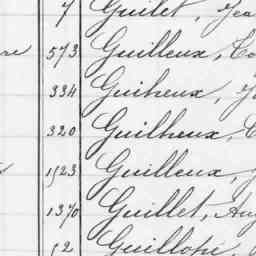 7 Guilet, Jea
573 Guilleux, Co
334 Guiheux, J
320 Guilheux, C
1523 Guilleux, J
1370 Guillet, Aug
52 Guillopé,